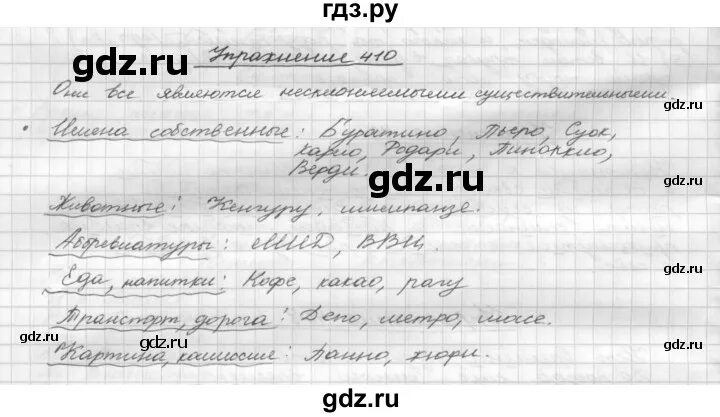 гдз.ру
Упражнение 410
Они все являются несклоняемыми существительными.
Имена собственные: Буратино, Пьеро, Суок,
Карло, Родари, Пиноккио,
Верди.
gdz.ru
Животные: Кенгуру, шимпанзе.
Аббревиатуры: МИД, ВВЦ.
Еда, напитки: Кофе, какао, рагу
Транспорт, дорога: Депо, метро, шоссе.
Картина, комиссия: Панно, жюри.
gdz.ru